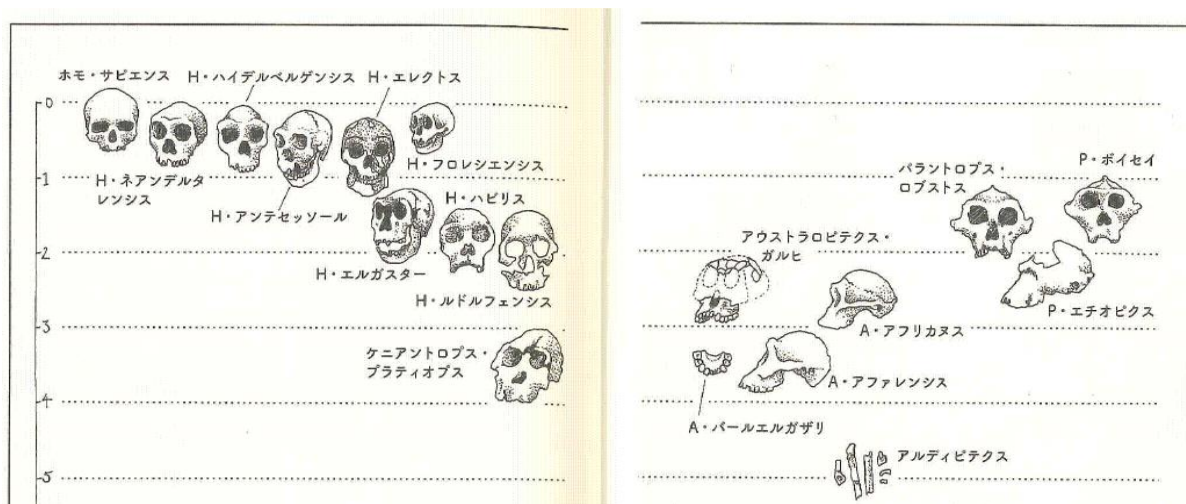 ホモ・サピエンス
H・ハイデルベルゲンシス
H・エレクトス
0
H・フロレシエンシス
1
H・ネアンデルタ
レンシス
H・アンテセッソール
H・ハビリス
2
H・エルガスター
H・ルドルフェンシス
3
ケニアントロプス・
プラティオプス
4
5
パラントロプス・
ロブストス
P・ボイセイ
アウストラロピテクス・
ガルヒ
P・エチオピクス
A・アフリカヌス
A・アファレンシス
A・バールエルガザリ
アルディピテクス